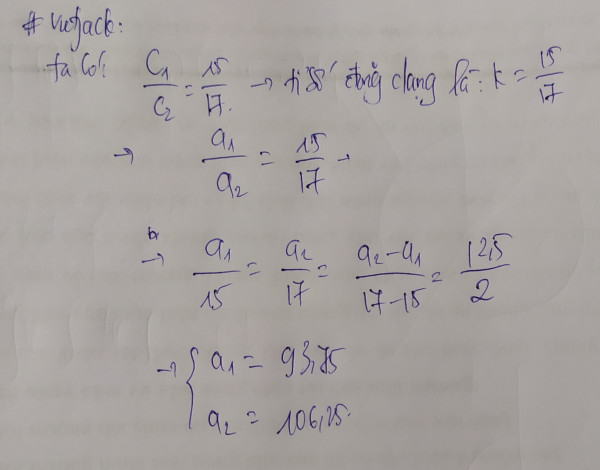 # Vietjack:
ta có: C₁/C₂ = 15/17. → tỉ số đồng dạng là: k = 15/17
→ a₁/a₂ = 15/17 →
→ a₁/15 = a₂/17 = (a₂-a₁)/(17-15) = 12,5/2
→ { a₁ = 93,75
a₂ = 106,25.